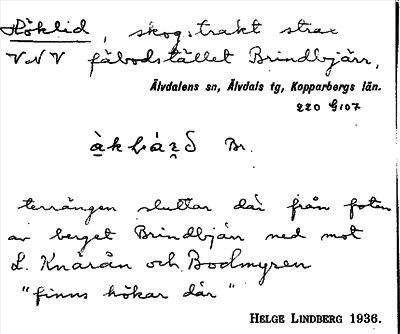 Höklid, skogstrakt strax
VNV fäbodstället Brindbjärr,
Älvdalens sn, Älvdals tg, Kopparbergs län.
220 G107
Br.
terrängen sluttar där från foten
av berget Brindbjärr ned mot
L. Knärån och Bodmyren
"finns hökar där"
HELGE LINDBERG 1936.